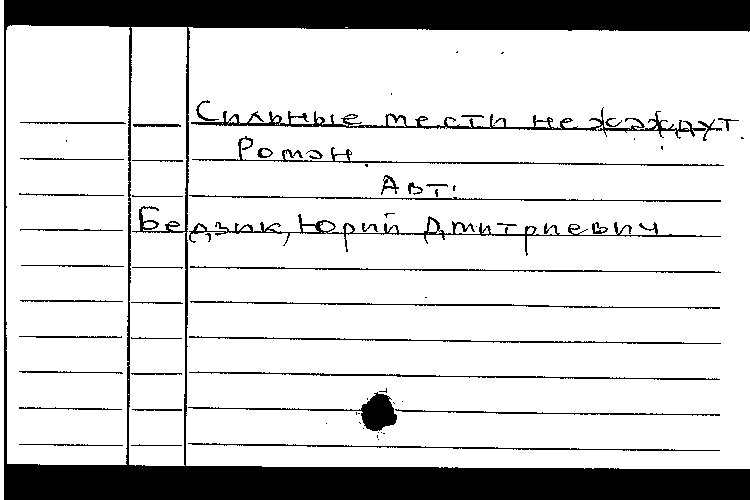 Сильные мести не жаждут.
Роман.
Авт:
Бедзик, Юрий Дмитриевич